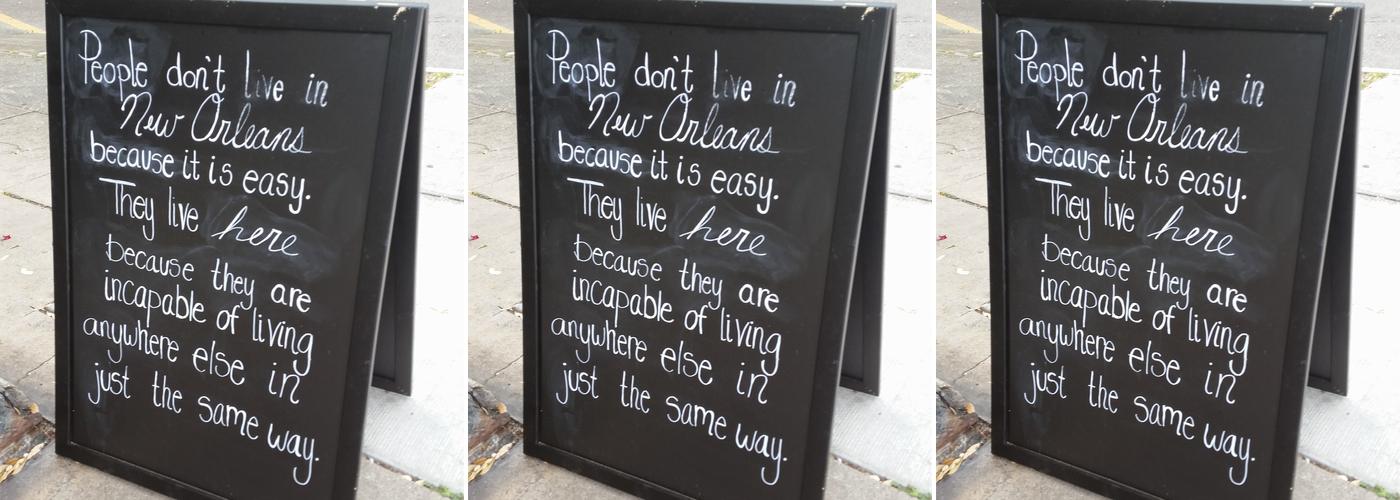 People don't live in
New Orleans
because it is easy.
They live here
because they are
incapable of living
anywhere else in
just the same way.
People don't live in
New Orleans
because it is easy.
They live here
because they are
incapable of living
anywhere else in
just the same way.
People don't live in
New Orleans
because it is easy.
They live here
because they are
incapable of living
anywhere else in
just the same way.